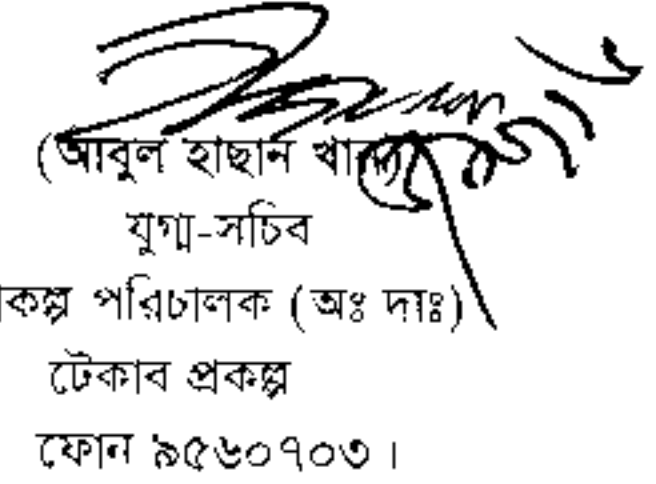 (আবুল হাছান খান)
যুগ্ম-সচিব
কল্প পরিচালক (অঃ দাঃ)
টেকাব প্রকল্প
ফোন ৯৫৬০৭০৩।